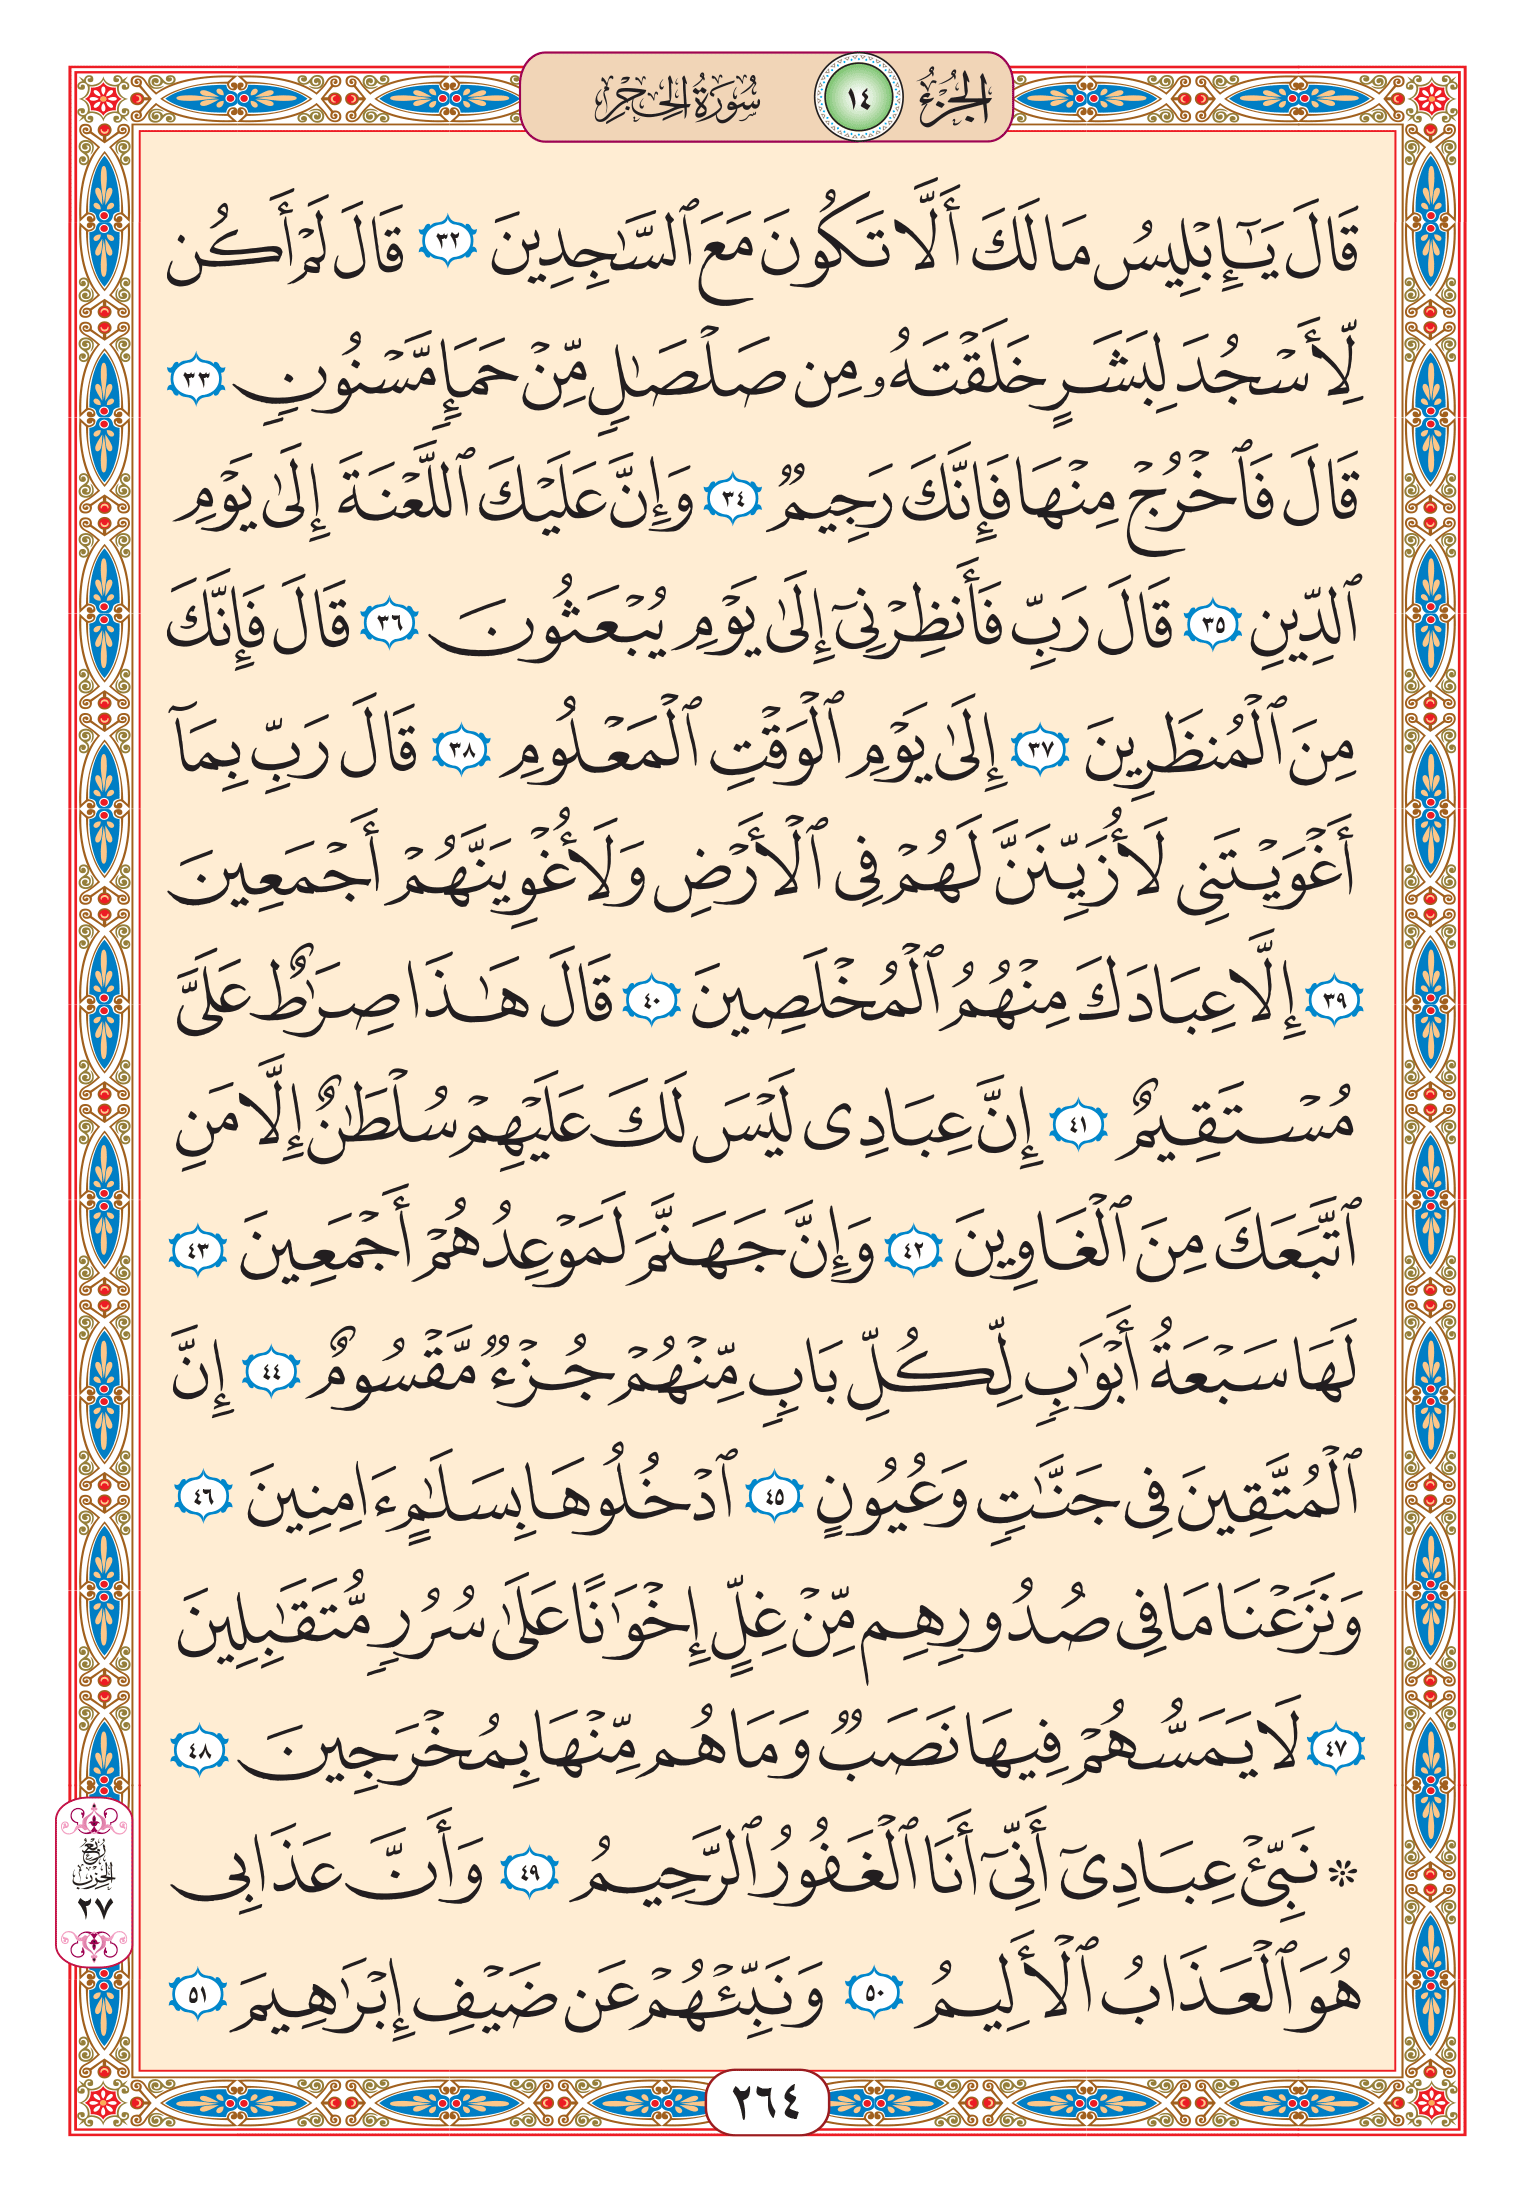 الجُزْءُ ١٤ سُورَةُ الحِجْرِ
قَالَ يَـٰٓإِبْلِيسُ مَا لَكَ أَلَّا تَكُونَ مَعَ ٱلسَّـٰجِدِينَ ٣٢ قَالَ لَمْ أَكُن
لِّأَسْجُدَ لِبَشَرٍ خَلَقْتَهُۥ مِن صَلْصَـٰلٍ مِّنْ حَمَإٍ مَّسْنُونٍ ٣٣
قَالَ فَٱخْرُجْ مِنْهَا فَإِنَّكَ رَجِيمٌ ٣٤ وَإِنَّ عَلَيْكَ ٱللَّعْنَةَ إِلَىٰ يَوْمِ
ٱلدِّينِ ٣٥ قَالَ رَبِّ فَأَنظِرْنِىٓ إِلَىٰ يَوْمِ يُبْعَثُونَ ٣٦ قَالَ فَإِنَّكَ
مِنَ ٱلْمُنظَرِينَ ٣٧ إِلَىٰ يَوْمِ ٱلْوَقْتِ ٱلْمَعْلُومِ ٣٨ قَالَ رَبِّ بِمَآ
أَغْوَيْتَنِى لَأُزَيِّنَنَّ لَهُمْ فِى ٱلْأَرْضِ وَلَأُغْوِيَنَّهُمْ أَجْمَعِينَ
٣٩ إِلَّا عِبَادَكَ مِنْهُمُ ٱلْمُخْلَصِينَ ٤٠ قَالَ هَـٰذَا صِرَٰطٌ عَلَىَّ
مُسْتَقِيمٌ ٤١ إِنَّ عِبَادِى لَيْسَ لَكَ عَلَيْهِمْ سُلْطَـٰنٌ إِلَّا مَنِ
ٱتَّبَعَكَ مِنَ ٱلْغَاوِينَ ٤٢ وَإِنَّ جَهَنَّمَ لَمَوْعِدُهُمْ أَجْمَعِينَ ٤٣
لَهَا سَبْعَةُ أَبْوَٰبٍ لِّكُلِّ بَابٍ مِّنْهُمْ جُزْءٌ مَّقْسُومٌ ٤٤ إِنَّ
ٱلْمُتَّقِينَ فِى جَنَّـٰتٍ وَعُيُونٍ ٤٥ ٱدْخُلُوهَا بِسَلَـٰمٍ ءَامِنِينَ ٤٦
وَنَزَعْنَا مَا فِى صُدُورِهِم مِّنْ غِلٍّ إِخْوَٰنًا عَلَىٰ سُرُرٍ مُّتَقَـٰبِلِينَ
٤٧ لَا يَمَسُّهُمْ فِيهَا نَصَبٌ وَمَا هُم مِّنْهَا بِمُخْرَجِينَ ٤٨
۞ نَبِّئْ عِبَادِىٓ أَنِّىٓ أَنَا ٱلْغَفُورُ ٱلرَّحِيمُ ٤٩ وَأَنَّ عَذَابِى
هُوَ ٱلْعَذَابُ ٱلْأَلِيمُ ٥٠ وَنَبِّئْهُمْ عَن ضَيْفِ إِبْرَٰهِيمَ ٥١
رُبْعُ
الحِزْب
٢٧
٢٦٤